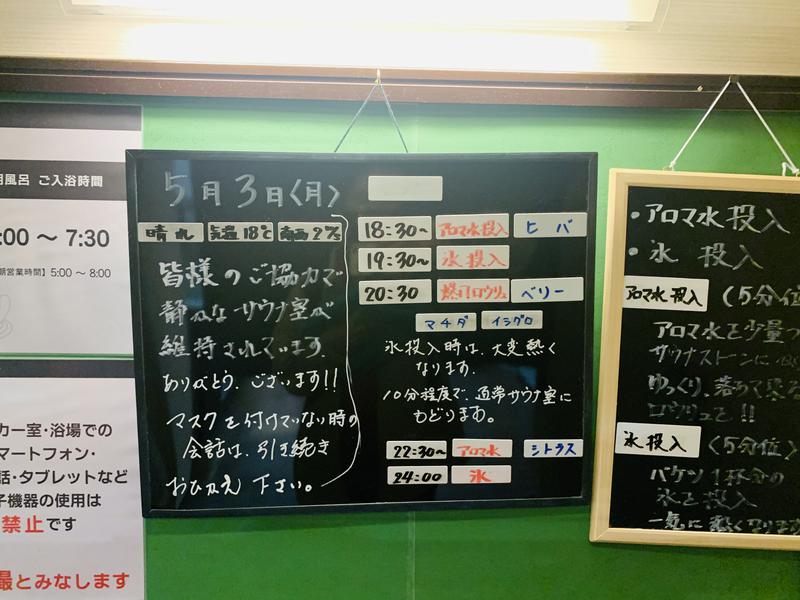 朝風呂 ご入浴時間
:00 ～ 7:30
朝営業時間】5:00 ～ 8:00
カー室・浴場での
マートフォン・
話・タブレットなど
子機器の使用は
禁止です
最とみなします
5月3日〈月〉
晴れ 気温18℃ 南西2m/s
皆様のご協力で
静かなサウナ室が
維持されています。
ありがとう、ございます!!
マスクを付けていない時の
会話は、引き続き
おひかえ 下さい。
18:30~ アロマ水投入 ヒバ
19:30~ 氷投入
20:30 爆汗ロウリュ ベリー
マチダ イシグロ
氷投入時は、大変熱く
なります。
10分程度で、通常サウナ室に
もどります。
22:30~ アロマ水 シトラス
24:00 氷
・アロマ水投入
・氷 投入
アロマ水投入 (5分位
アロマ水を少量
サウナストーンに
ゆっくり、
ロウリュを!!
氷投入 (5分位)
バケツ1杯分の
氷を投入
一気に熱くなります